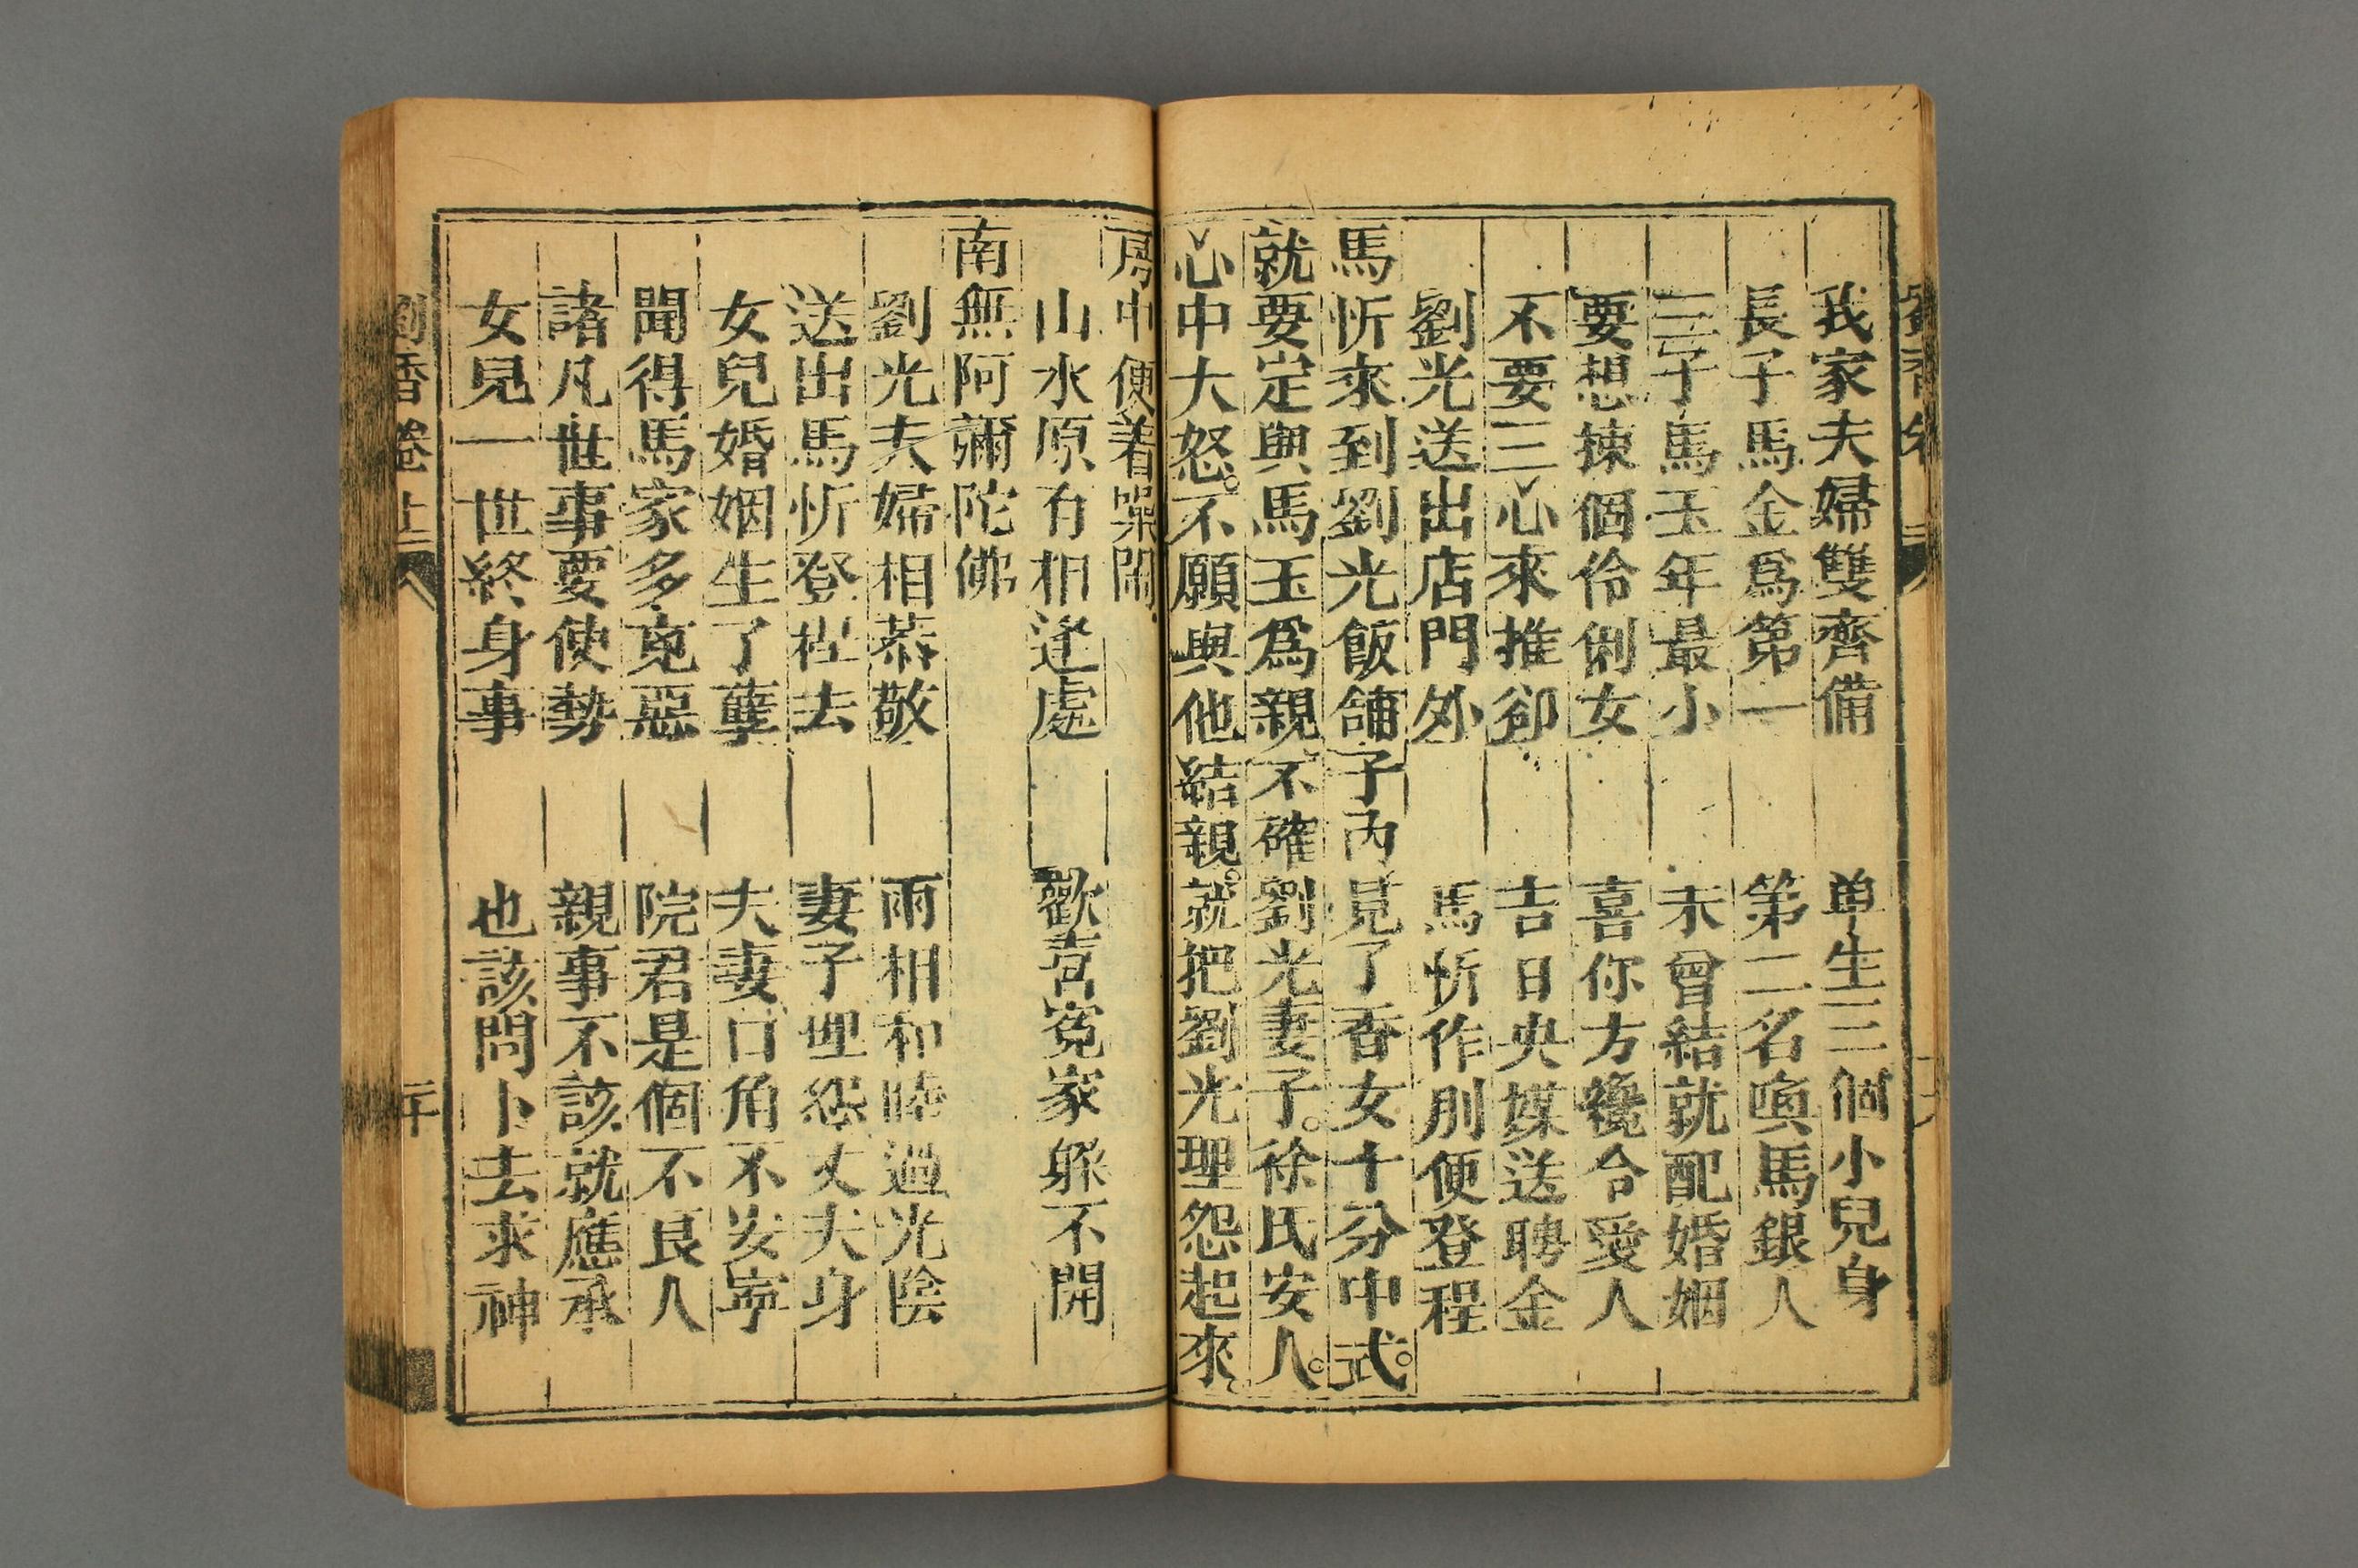 我家夫婦雙齊備 单生三個小兒身
長子馬金爲第一 第二名喚馬銀人
三子馬玉年最小 未曾結就配婚姻
要想揀個伶俐女 喜你方纔令愛人
不要三心來推卻 吉日央媒送聘金
劉光送出店門外 馬忻作别便登程
馬忻來到劉光飯舖子內見了香女十分中式。
就要定與馬玉爲親不確劉光妻子。徐氏安人。
心中大怒。不願與他結親。就把劉光埋怨起來。
房中便着噪鬧。
山水原有相逢處 歡喜寃家躲不開
南無阿彌陀佛
劉光夫婦相恭敬 兩相和睦過光陰
送出馬忻登程去 妻子埋怨丈夫身
女兒婚姻生了孽 夫妻口角不安寕
聞得馬家多克惡 院君是個不良人
諸凡世事要使勢 親事不該就應承
女兒一世終身事 也該問卜去求神
劉香卷 上 二十